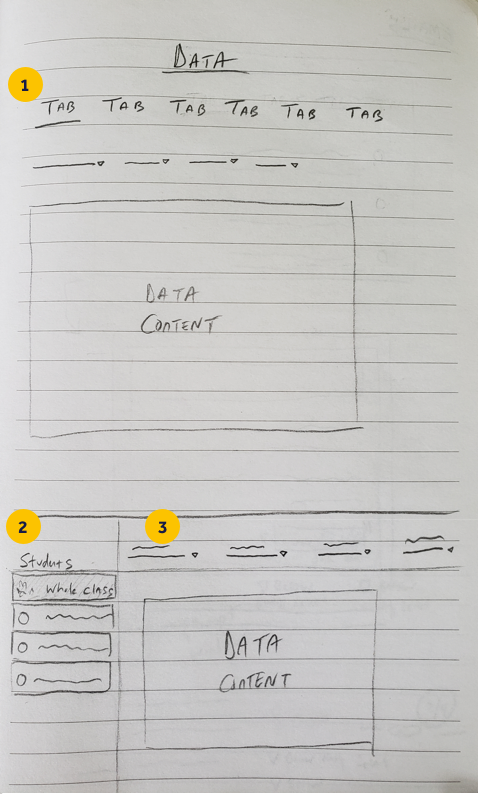 DATA
1
TAB TAB TAB TAB TAB TAB
DATA
CONTENT
2
3
Students
Whole class
DATA
CONTENT